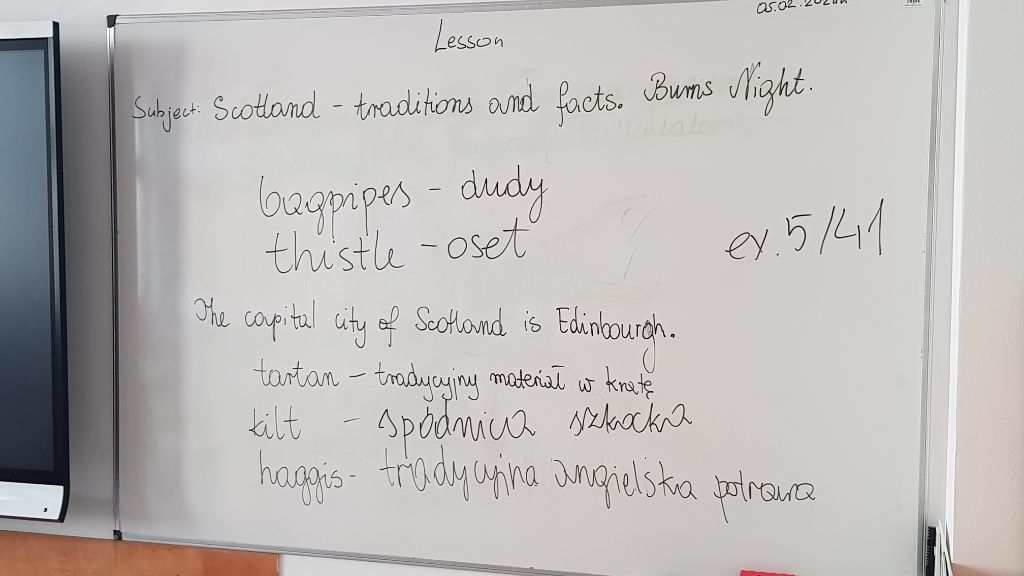 05.02.202
Lesson
Subject: Scotland - traditions and facts. Burns Night.
bagpipes - dudy
thistle - oset
ex. 5/41
The capital city of Scotland is Edinbourgh.
tartan - tradycyjny materiał w kratę
kilt - spódnica szkocka
haggis - tradycyjna angielska potrawa